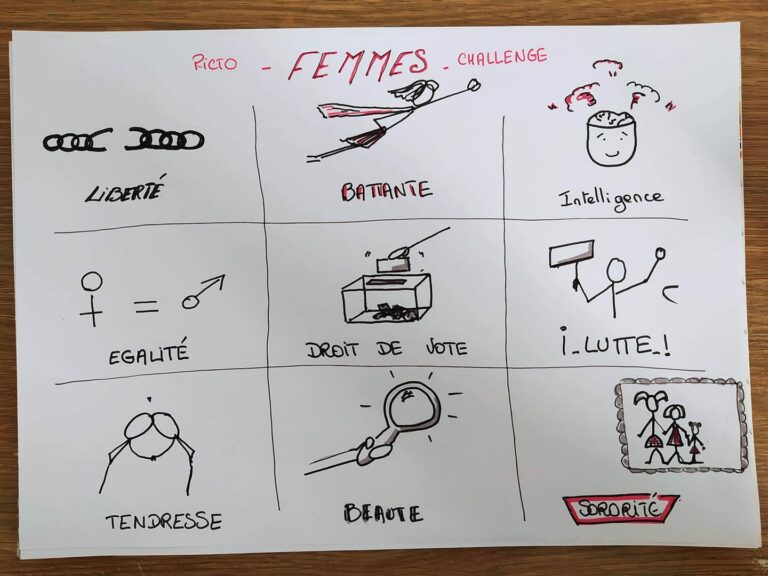 PICTO - FEMMES - CHALLENGE
LIBERTÉ
BATTANTE
Intelligence
EGALITÉ
DROIT DE VOTE
¡_LUTTE_!
TENDRESSE
BEAUTE
SORORITÉ